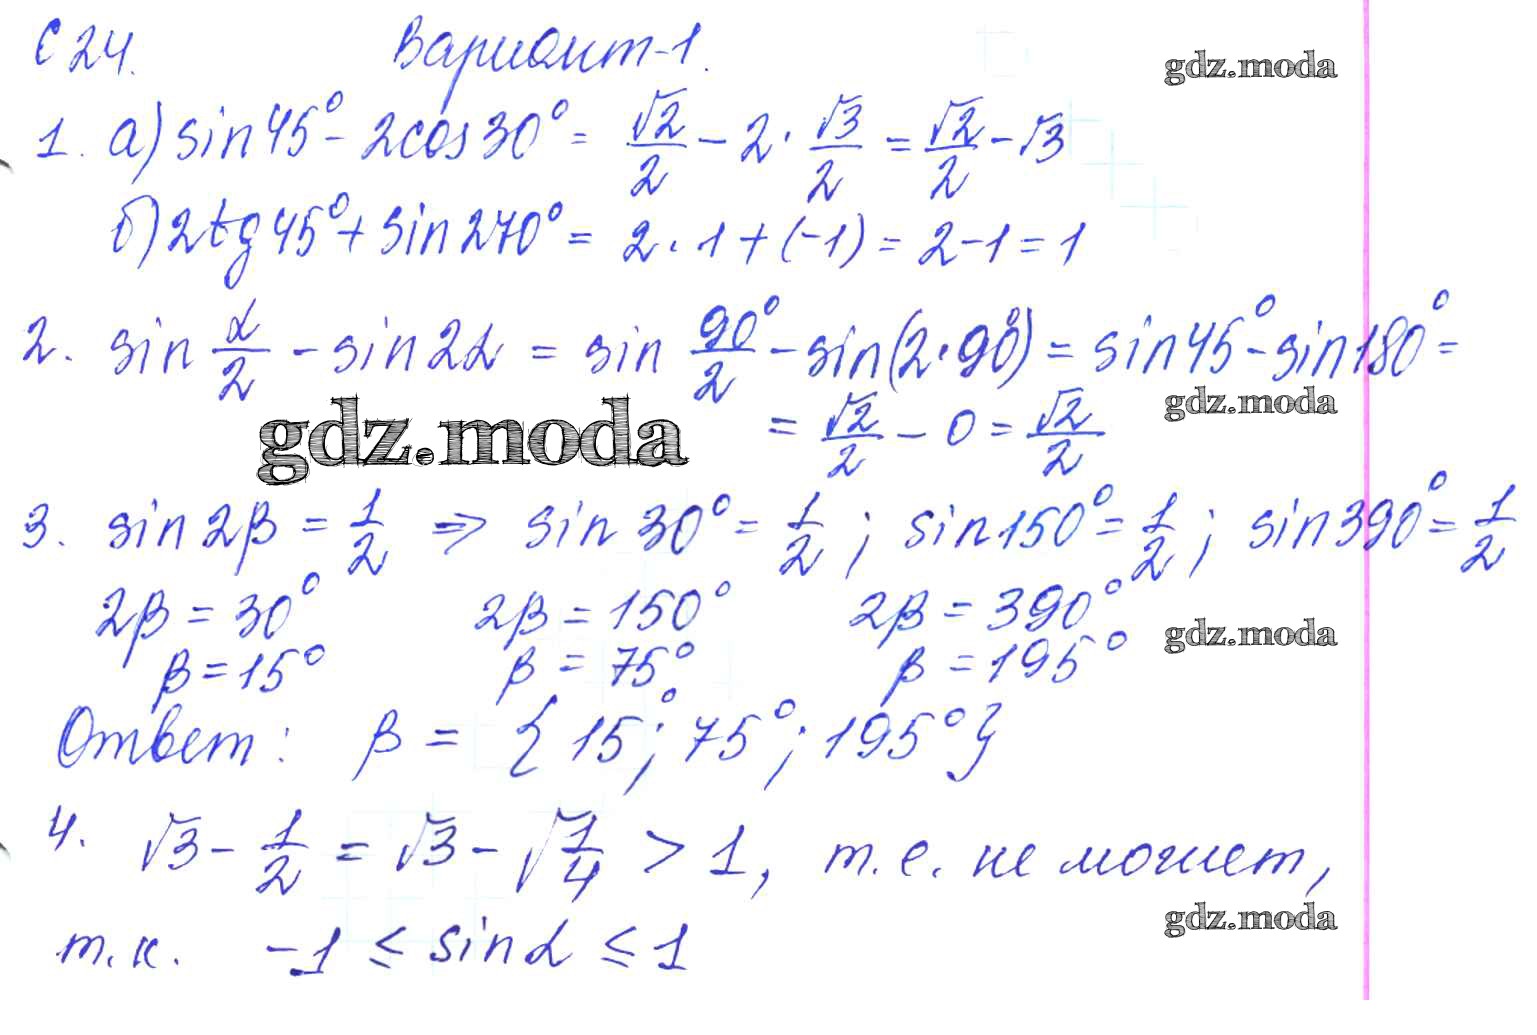 С 24. Вариант-1.
gdz.moda
1. а) sin 45° - 2cos 30° = √2/2 - 2 · √3/2 = √2/2 - √3
б) 2tg 45° + sin 270° = 2 · 1 + (-1) = 2 - 1 = 1
2. sin α/2 - sin 2α = sin 90°/2 - sin(2 · 90°) = sin 45° - sin 180° =
gdz.moda
= √2/2 - 0 = √2/2
gdz.moda
3. sin 2β = 1/2 ⇒ sin 30° = 1/2 ; sin 150° = 1/2 ; sin 390° = 1/2
2β = 30° 2β = 150° 2β = 390°
gdz.moda
β = 15° β = 75° β = 195°
Ответ: β = {15°; 75°; 195°}
4. √3 - 1/2 = √3 - √1/4 > 1, т.е. не может,
gdz.moda
т.к. -1 ≤ sin α ≤ 1